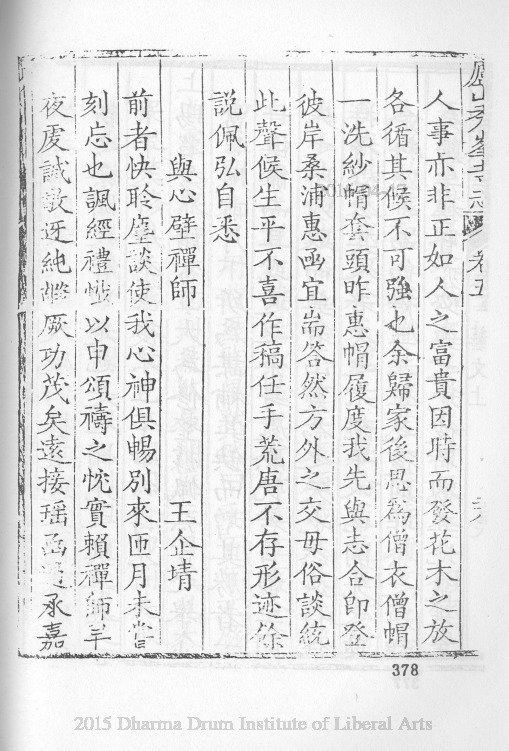 廬山秀峯寺志 卷五
人事亦非正如人之富貴因時而發花木之放
各循其候不可強也余歸家後思爲僧衣僧帽
一洗紗帽套頭昨惠帽履度我先與志合即登
彼岸桑浦惠函宜耑答然方外之交毋俗談統
此聲候生平不喜作稿任手荒唐不存形迹餘
説佩弘自悉
與心壁禪師
王企埥
前者快聆麈談使我心神俱暢別來匝月未嘗
刻忘也諷經禮懺以申頌禱之忱實賴禪師
夜虔誠敬迓純嘏厥功茂矣遠接瑶函承嘉
378
2015 Dharma Drum Institute of Liberal Arts